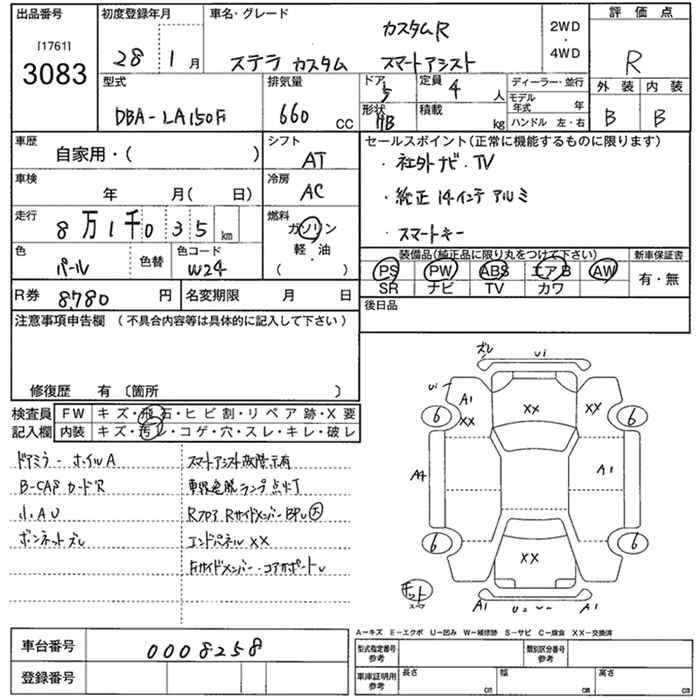 出品番号
[1761]
3083
初度登録年月
28年 1月
車名・グレード
カスタムR
ステラ カスタム スマートアシスト
2WD
・
4WD
評価点
R
外装 内装
B B
型式
DBA-LA150F
排気量
660 CC
ドア
5
形状
HB
定員
4 人
積載
kg
ディーラー・並行
モデル年式 年
ハンドル 左・右
車歴
自家用・( )
シフト
AT
車検
年 月( 日)
冷房
AC
走行
8万1千035 km
燃料
ガソリン
軽・油
( )
色
パール
色替
色コード
W24
R券
8,780 円
名変期限 月 日
セールスポイント(正常に機能するものに限ります)
・社外ナビ・TV
・純正14インチ アルミ
・スマートキー
装備品(純正品に限り丸をつけて下さい)
PS PW ABS エアB AW
SR ナビ TV カワ
新車保証書
有・無
後日品
注意事項申告欄 (不具合内容等は具体的に記入して下さい)
修復歴 有 〔箇所 〕
検査員
記入欄
FW キズ・飛石・ヒビ割・リペア跡・X要
内装 キズ・汚レ・コゲ・穴・スレ・キレ・破レ
ドアミラー・ホイルA
B-CAP カードR
小AU
ボンネットズレ
スマートアシスト故障示有
ランプ点灯
Rフロア RサイドメンバーBPU大
エンドパネルXX
コアサポートU
ズレ
Ui
Ui
A1
XX
XX
XX
6
6
A4
A1
6
6
XX
A1
A1
A-キズ E-エクボ U-凹み W-補修跡 S-サビ C-腐食 XX-交換済
車台番号
0008258
登録番号
型式指定番号
参考
類別区分番号
参考
車庫証明用
参考
長さ cm
幅 cm
高さ cm